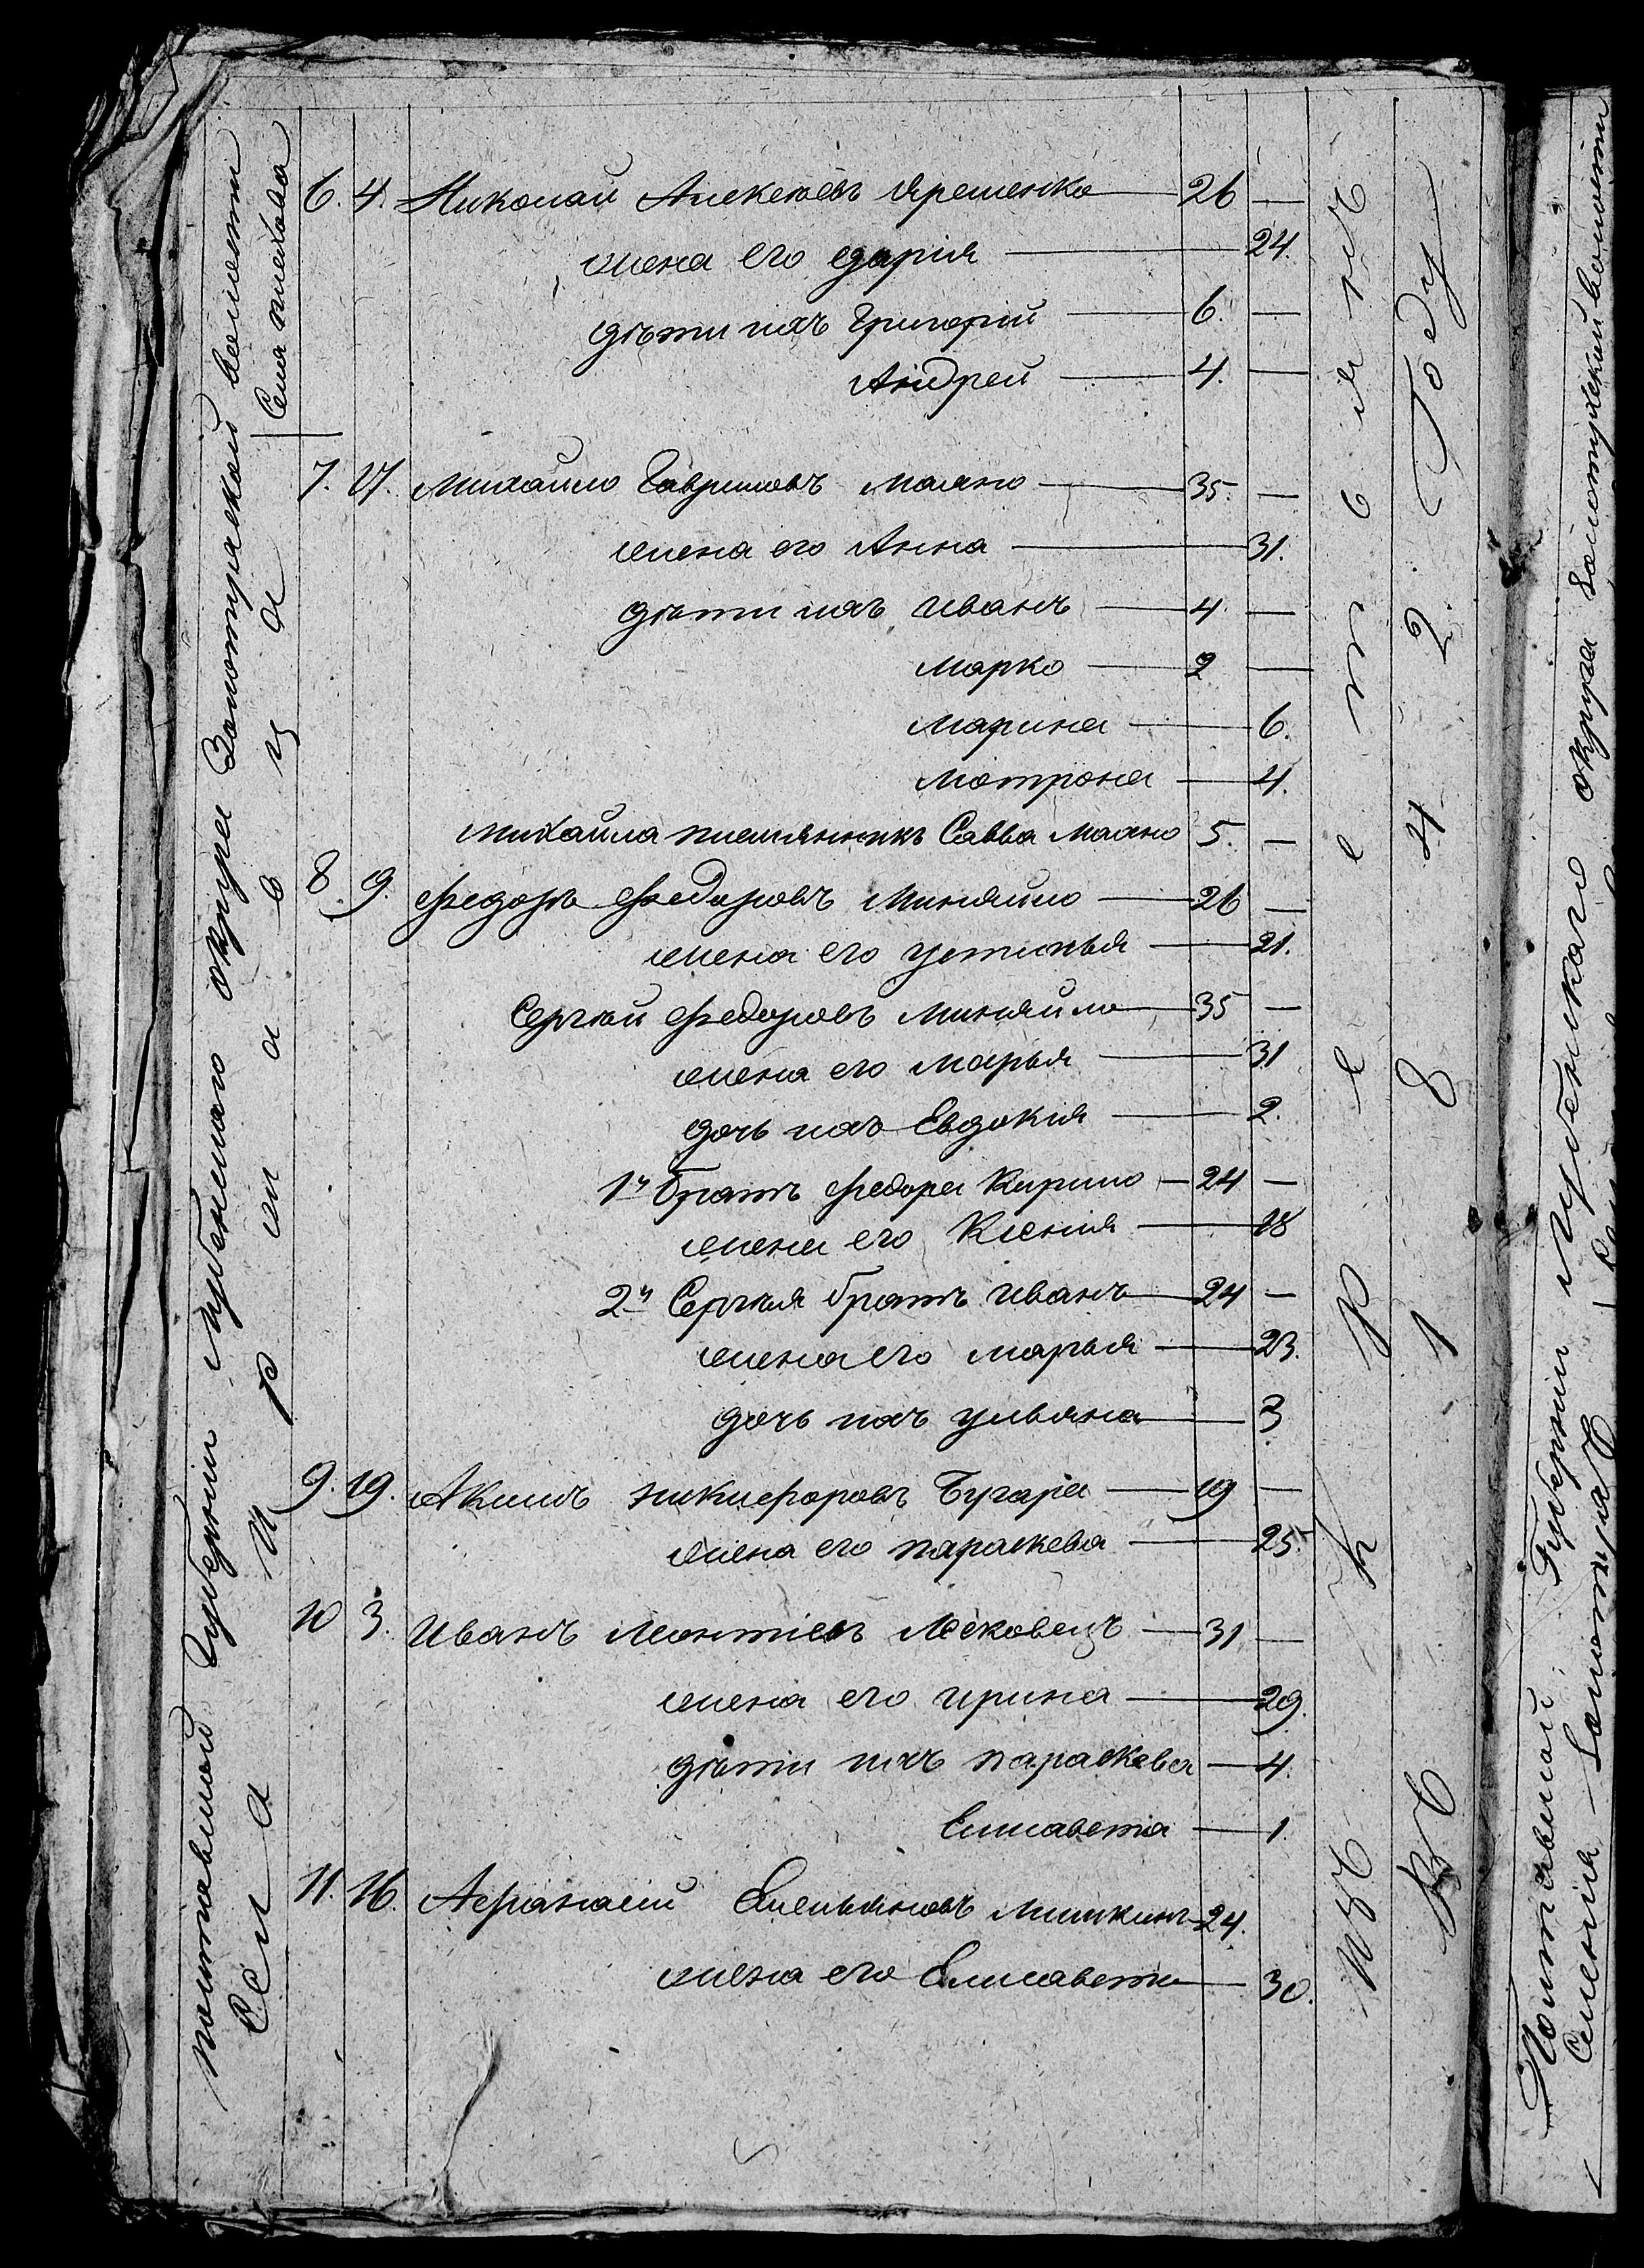 Полтавской Губернии Лубенскаго округа Золоторяской волости
Села Кравца
Села Плехова
6. 4. Николай Алексеевъ Яременко — 26 —
жена его Дарія — 24.
дѣти ихъ Григорій — 6. —
Андрей — 4. —
7. 17. Михайло Гавриловъ Махно — 35. —
жена его Анна — 31.
дѣти ихъ Иванъ — 4. —
Марко — 2 —
Марина — 6.
Мотрона — 4.
Михайла племянникъ Савва Махно 5. —
8. 9. Федоръ Федоровъ Миняйло — 26 —
жена его Устинья — 21.
Сергѣй Федоровъ Миняйло — 35 —
жена его Марья — 31
дочь ихъ Евдокія — 2.
1й братъ Федора Кирило — 24 —
жена его Ксенія — 18
2й Сергѣя братъ Иванъ — 24 —
жена его Марья — 23.
дочь ихъ Ульяна — 3
9. 19. Акимъ Никифоровъ Бугара — 19 —
жена его Параскева — 25.
10 3. Иванъ Леонтіевъ Лековецъ — 31 —
жена его Ирина — 29.
дѣти ихъ Параскева — 4.
Елисавета — 1.
11. 16. Афанасій Емельяновъ Мишкинъ — 24.
жена его Елисавета — 30.
Изъ переселенцевъ
Въ 1842 Году
Полтавской Губерніи Лубенскаго округа Золоторяской волости
Селенія